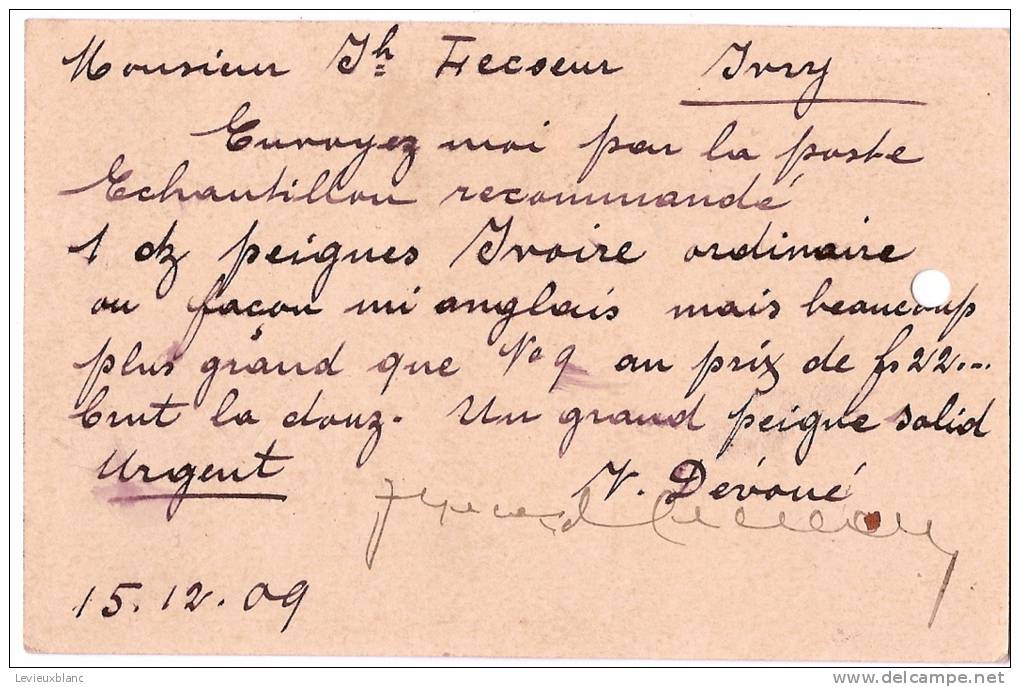 Monsieur Jh Lecoeur Ivry
Envoyez moi par la poste
Echantillon recommandé
1 dz peignes Ivoire ordinaire
ou façon mi anglais mais beaucoup
plus grand que No 9 au prix de fs 22.--
brut la douz. Un grand peigne solid
Urgent V. Dévoué
15.12.09
Levieuxblanc
www.delcampe.net